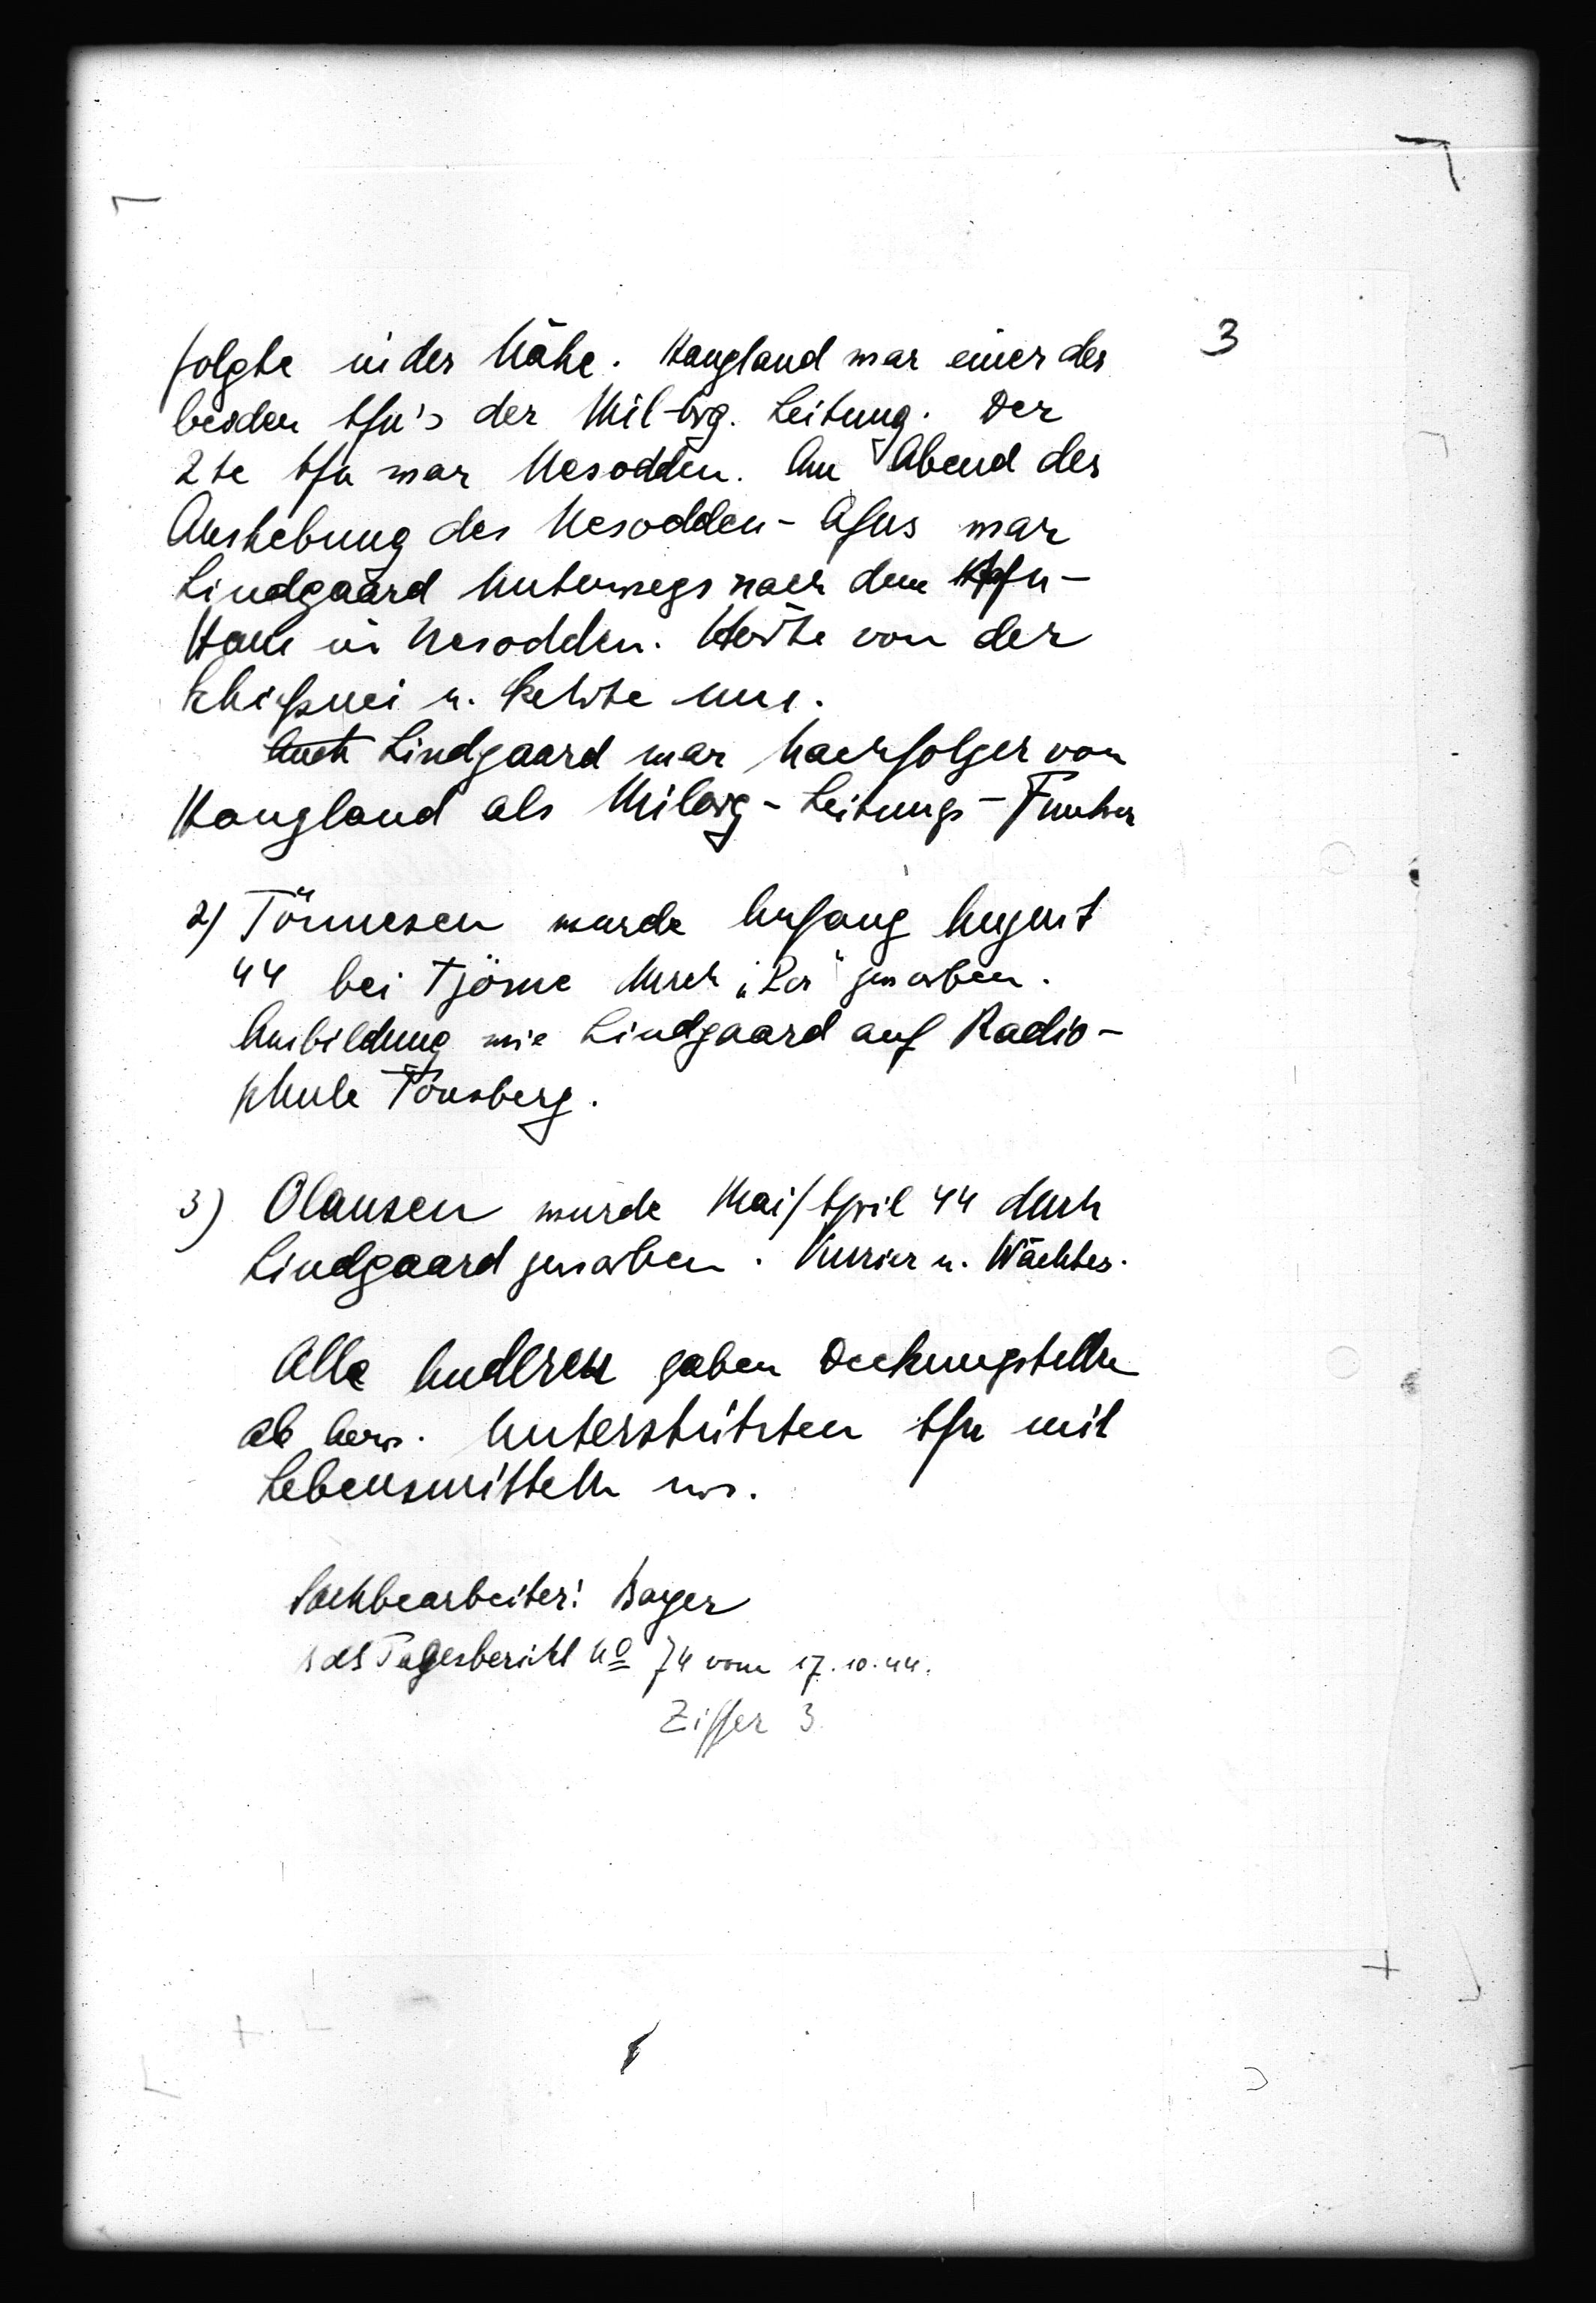 3
folgte in der Nähe. Haugland war einer der
beiden Afu's der Mil-Org. Leitung. Der
2te Afu war Nesodden. Am Abend der
Aushebung des Nesodden-Afus war
Lindgaard unterwegs nach dem Afu-
Haus in Nesodden. Hörte von der
Schießerei u. kehrte um.
Auch Lindgaard war Nachfolger von
Haugland als Milorg-Leitungs-Funker
2) Tönnesen wurde Anfang August
44 bei Tjöme durch „Per" geworben.
Ausbildung wie Lindgaard auf Radio-
schule Tönsberg.
3) Olausen wurde Mai/April 44 durch
Lindgaard geworben. Kurier u. Wächter.
Alle Anderen gaben Deckungstellen
ab bezw. Unterstützten Afu mit
Lebensmitteln usw.
Sachbearbeiter: Bayer
Tagesbericht No 74 vom 17.10.44.
Ziffer 3